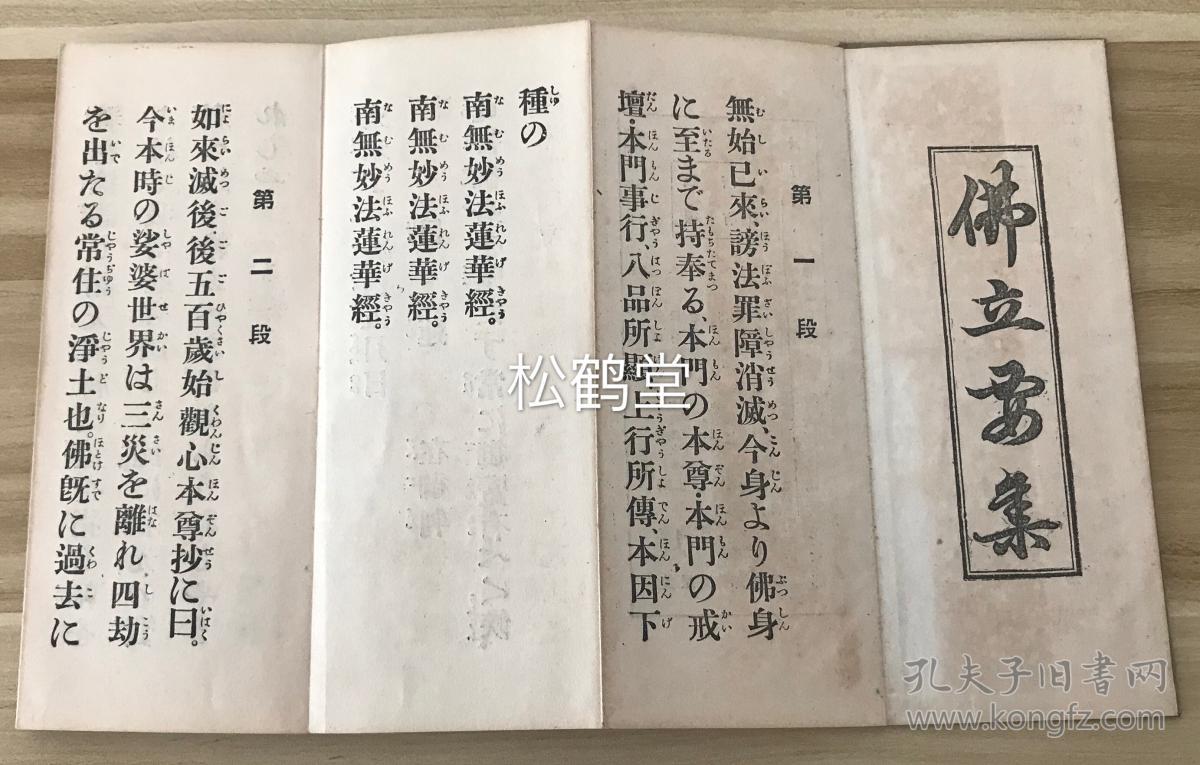 佛立要集
第一段
無始已來、謗法罪障消滅、今身より佛身
に至まで持奉る、本門の本尊・本門の戒
壇・本門事行、八品所顯上行所傳、本因下
種の
南無妙法蓮華經。
南無妙法蓮華經。
南無妙法蓮華經。
第二段
如來滅後後五百歲始觀心本尊抄に曰。
今本時の娑婆世界は三災を離れ四劫
を出たる常住の淨土也。佛既に過去に
松鹤堂
孔夫子旧书网
www.kongfz.com